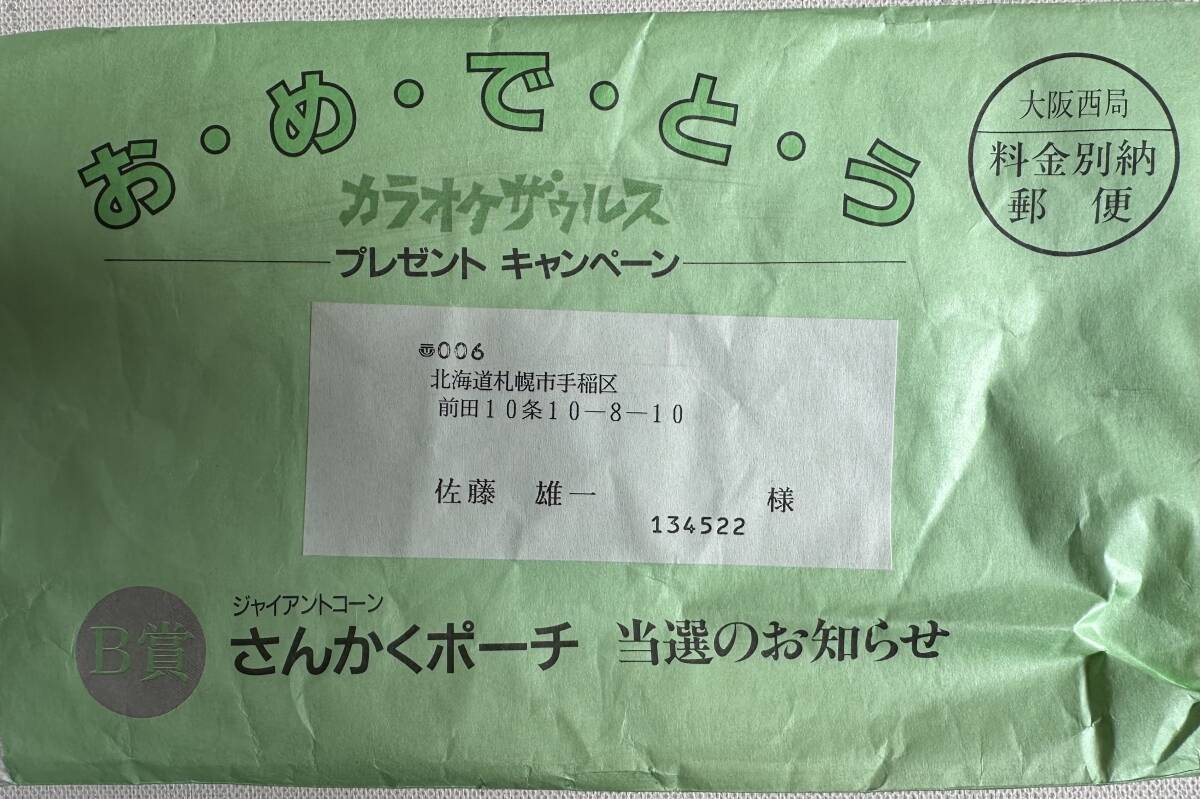 お・め・で・と・う
カラオケザウルス
プレゼント キャンペーン
大阪西局
料金別納
郵 便
〠006
北海道札幌市手稲区
前田10条10-8-10
佐藤 雄一 様
134522
B賞
ジャイアントコーン
さんかくポーチ 当選のお知らせ